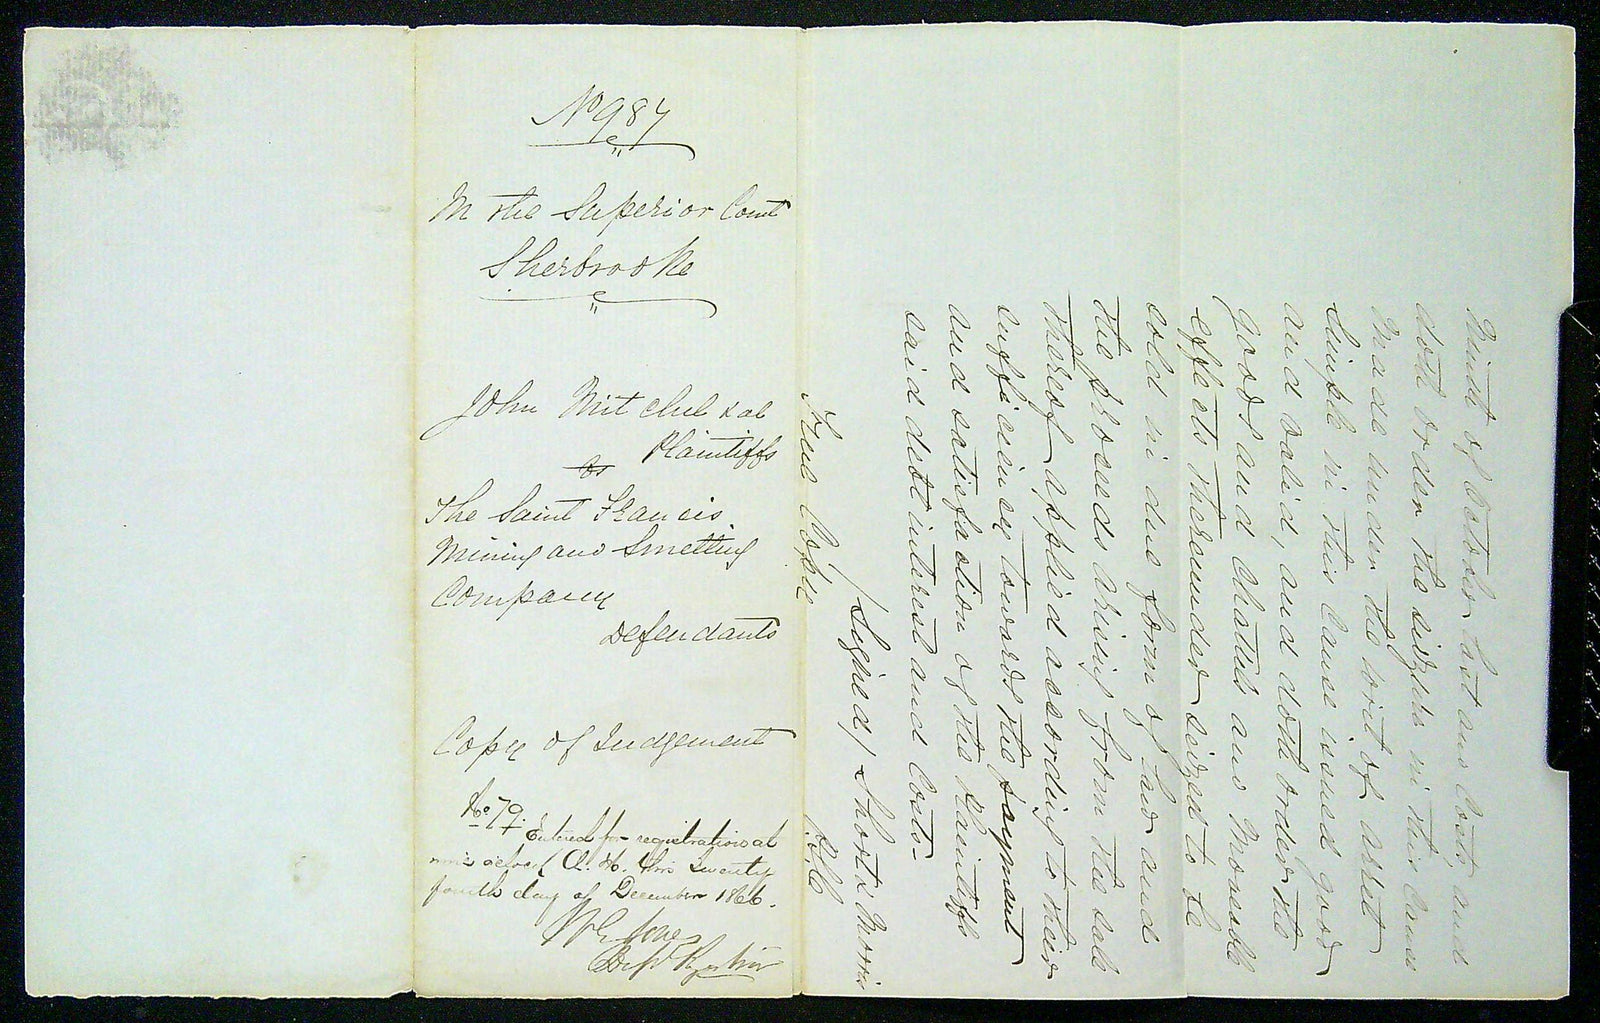 No 987
In the Superior Court
Sherbrooke
John Mitchel & al
Plaintiffs
vs
The Saint Francis
Mining and Smelting
Company
Defendants
Copy of Judgement
No 79. Entered for registration at
nine o'clock A. M. this Twenty
fourth day of December 1866.
Jones
Depy Registrar
of October last and Costs, and
doth order the seizure in this Cause
made under the writ of arrêt
simple in this Cause issued good
and valid, and doth order the
goods and Chattels and Moveable
effects thereunder seized to be
sold in due form of law and
the proceeds arising from the sale
thereof applied according to their
sufficiency towards the payment
and satisfaction of the Plaintiffs
said debt interest and Costs.
(Signed) Short & Morris
True Copy